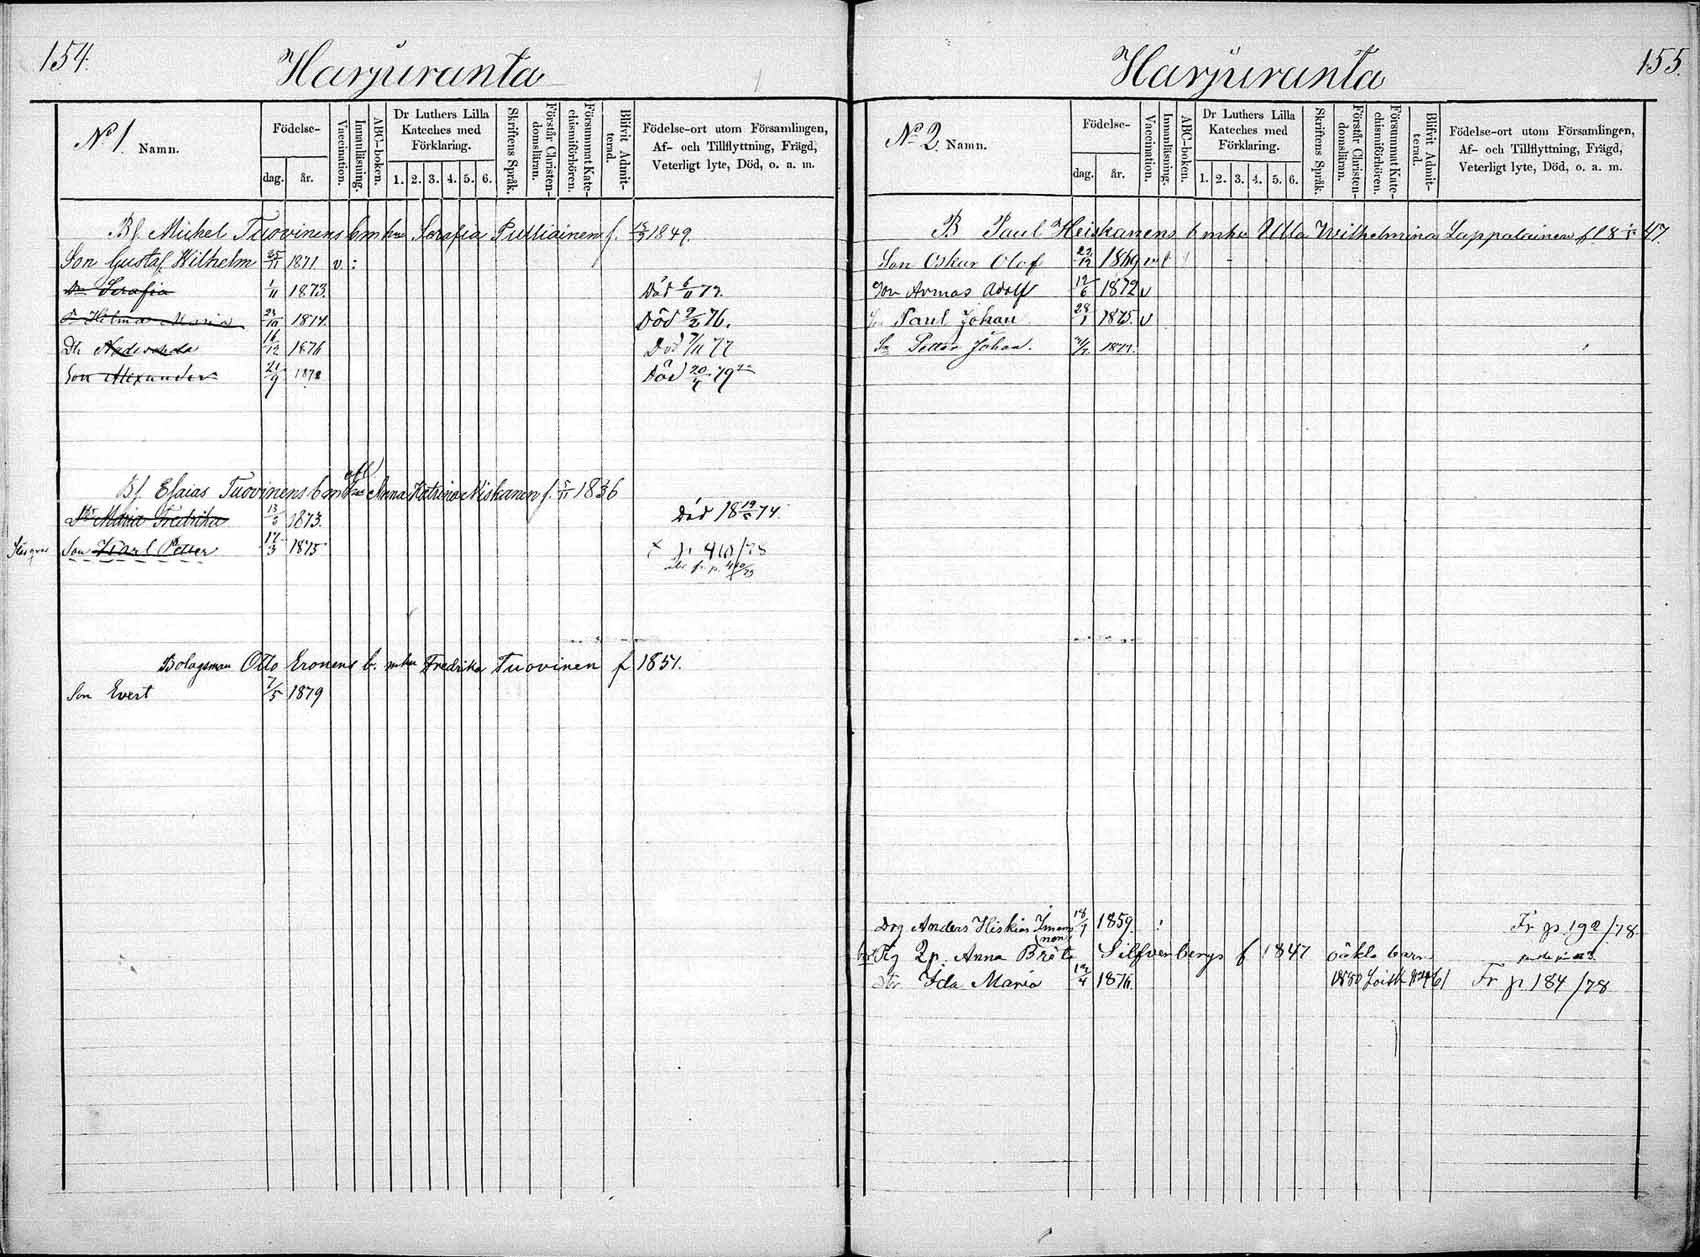 154.
Harjuranta
No 1. Namn.
Födelse-
dag. år.
Vaccination.
Innanläsning.
ABC-boken.
Dr Luthers Lilla Kateches med Förklaring.
1. 2. 3. 4. 5. 6.
Skriftens Språk.
Förstår Christendomsläran.
Försummat Katechismiförhören.
Blifvit Admitterad.
Födelse-ort utom Församlingen,
Af- och Tillflyttning, Frägd,
Veterligt lyte, Död, o. a. m.
Bf. Michel Tuovinens b m hu Serafia Pulliainen f. 1849.
Son Gustaf Wilhelm 25/11 1871 v :
Dr Serafia 1/11 1873. Död 6/11 73.
Dr Hilma Maria 23/10 1874. Död 2/2 76.
Dr 16/12 1876 Död 7/11 77
Son Alexander 21/9 1878 Död 20/4 79
Bf. Esaias Tuovinens b m Anna Katrina Niskanen f. 5/11 1836
Dr Maria Fredrika 13/5 1873. Död 18 19/5 74.
Son Karl Petter 17/3 1875 p. 410/78
Bolagsman Otto Eronens b. m hu Fredrika Tuovinen f 1851.
Son Evert 7/5 1879
155.
Harjuranta
No 2. Namn.
Födelse-
dag. år.
Vaccination.
Innanläsning.
ABC-boken.
Dr Luthers Lilla Kateches med Förklaring.
1. 2. 3. 4. 5. 6.
Skriftens Språk.
Förstår Christendomsläran.
Försummat Katechismiförhören.
Blifvit Admitterad.
Födelse-ort utom Församlingen,
Af- och Tillflyttning, Frägd,
Veterligt lyte, Död, o. a. m.
B Paul Heiskanens b m hu Ulla Wilhelmina Lappalainen f. 47.
Son Oskar Olof 22/12 1869
Son Armas Adolf 12/6 1872 v
Paul Johan 28/1 1875. v
Sn Petter Johan. 1877.
Drg Anders Hiskias Immonen 18/7 1859. Fr p. 192/78
Pig 2 p. Anna Brita Silfvenbergs f 1847 oäkta barn
Dr Ida Maria 1876. Fr p. 184/78